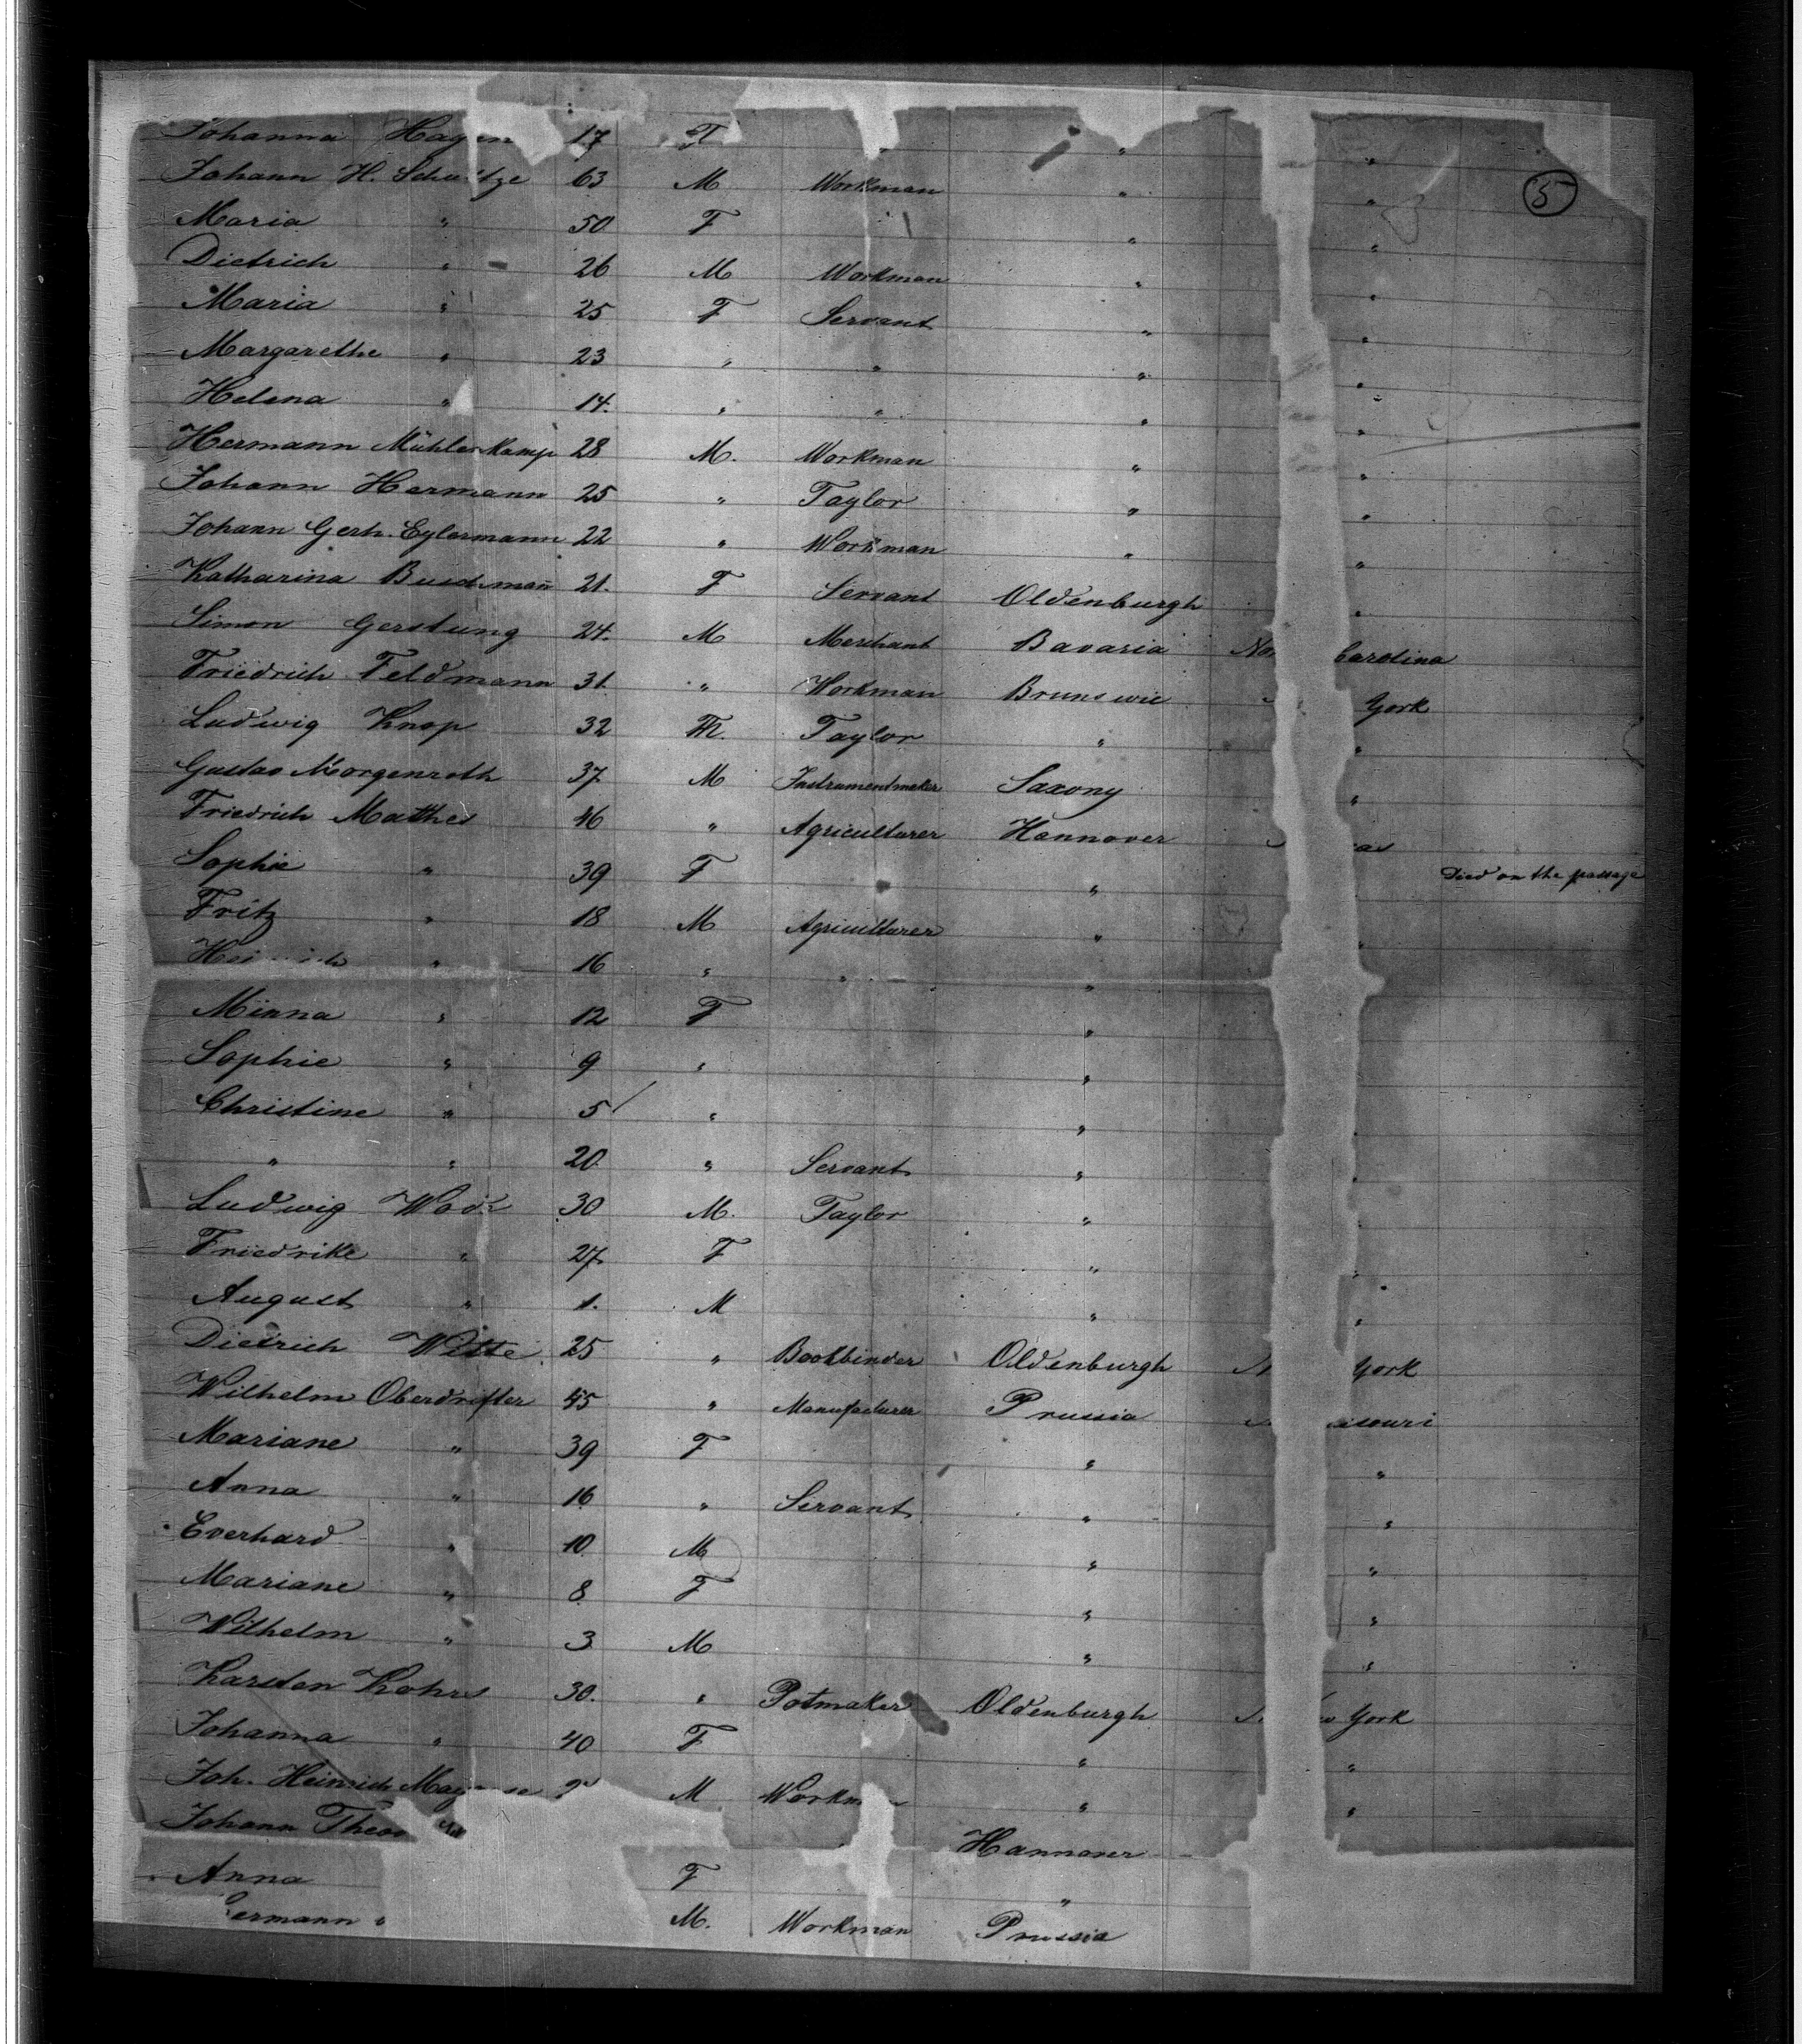 5
Johanna Hagen 17 F " "
Johann H. Schultze 63 M Workman " "
Maria " 50 F " "
Dietrich " 26 M Workman " "
Maria " 25 F Servant " "
Margarethe " 23 " " " "
Helena " 14. " " " "
Hermann Mühlenkamp 28 M. Workman " "
Johann Hermann 25 " Taylor " "
Johann Gerh. Eylermann 22 " Workman " "
Katharina Buschman̄ 21. F Servant Oldenburgh "
Simon Gerstung 24. M Merchant Bavaria Carolina
Friedrich Feldmann 31. " Workman Brunswic York
Ludwig Knop 32 M. Taylor " "
Gustav Morgenroth 37 M Instrumentmaker Saxony "
Friedrich Mathes 46 " Agriculturer Hannover
Sophie " 39 F " Died on the passage
Fritz " 18 M Agriculturer " "
" 16 " " "
Minna " 12 F "
Sophie " 9 " "
Christine " 5 " "
" " 20 " Servant "
Ludwig 30 M. Taylor "
Friedrike " 27 F " "
August " 1. M " "
Dietrich Witte 25 " Bookbinder Oldenburgh York
Wilhelm Oberdrifter 45 " Manufacturer Prussia
Mariane " 39 F " "
Anna " 16 " Servant " "
Everhard " 10 M " "
Mariane " 8 F " "
Wilhelm " 3 M " "
Karsten Kohrs 30. " Potmaker Oldenburgh York
Johanna " 40 F " "
Joh. Heinrich M " "
Johann Hannover
Anna F "
M. Workman Prussia